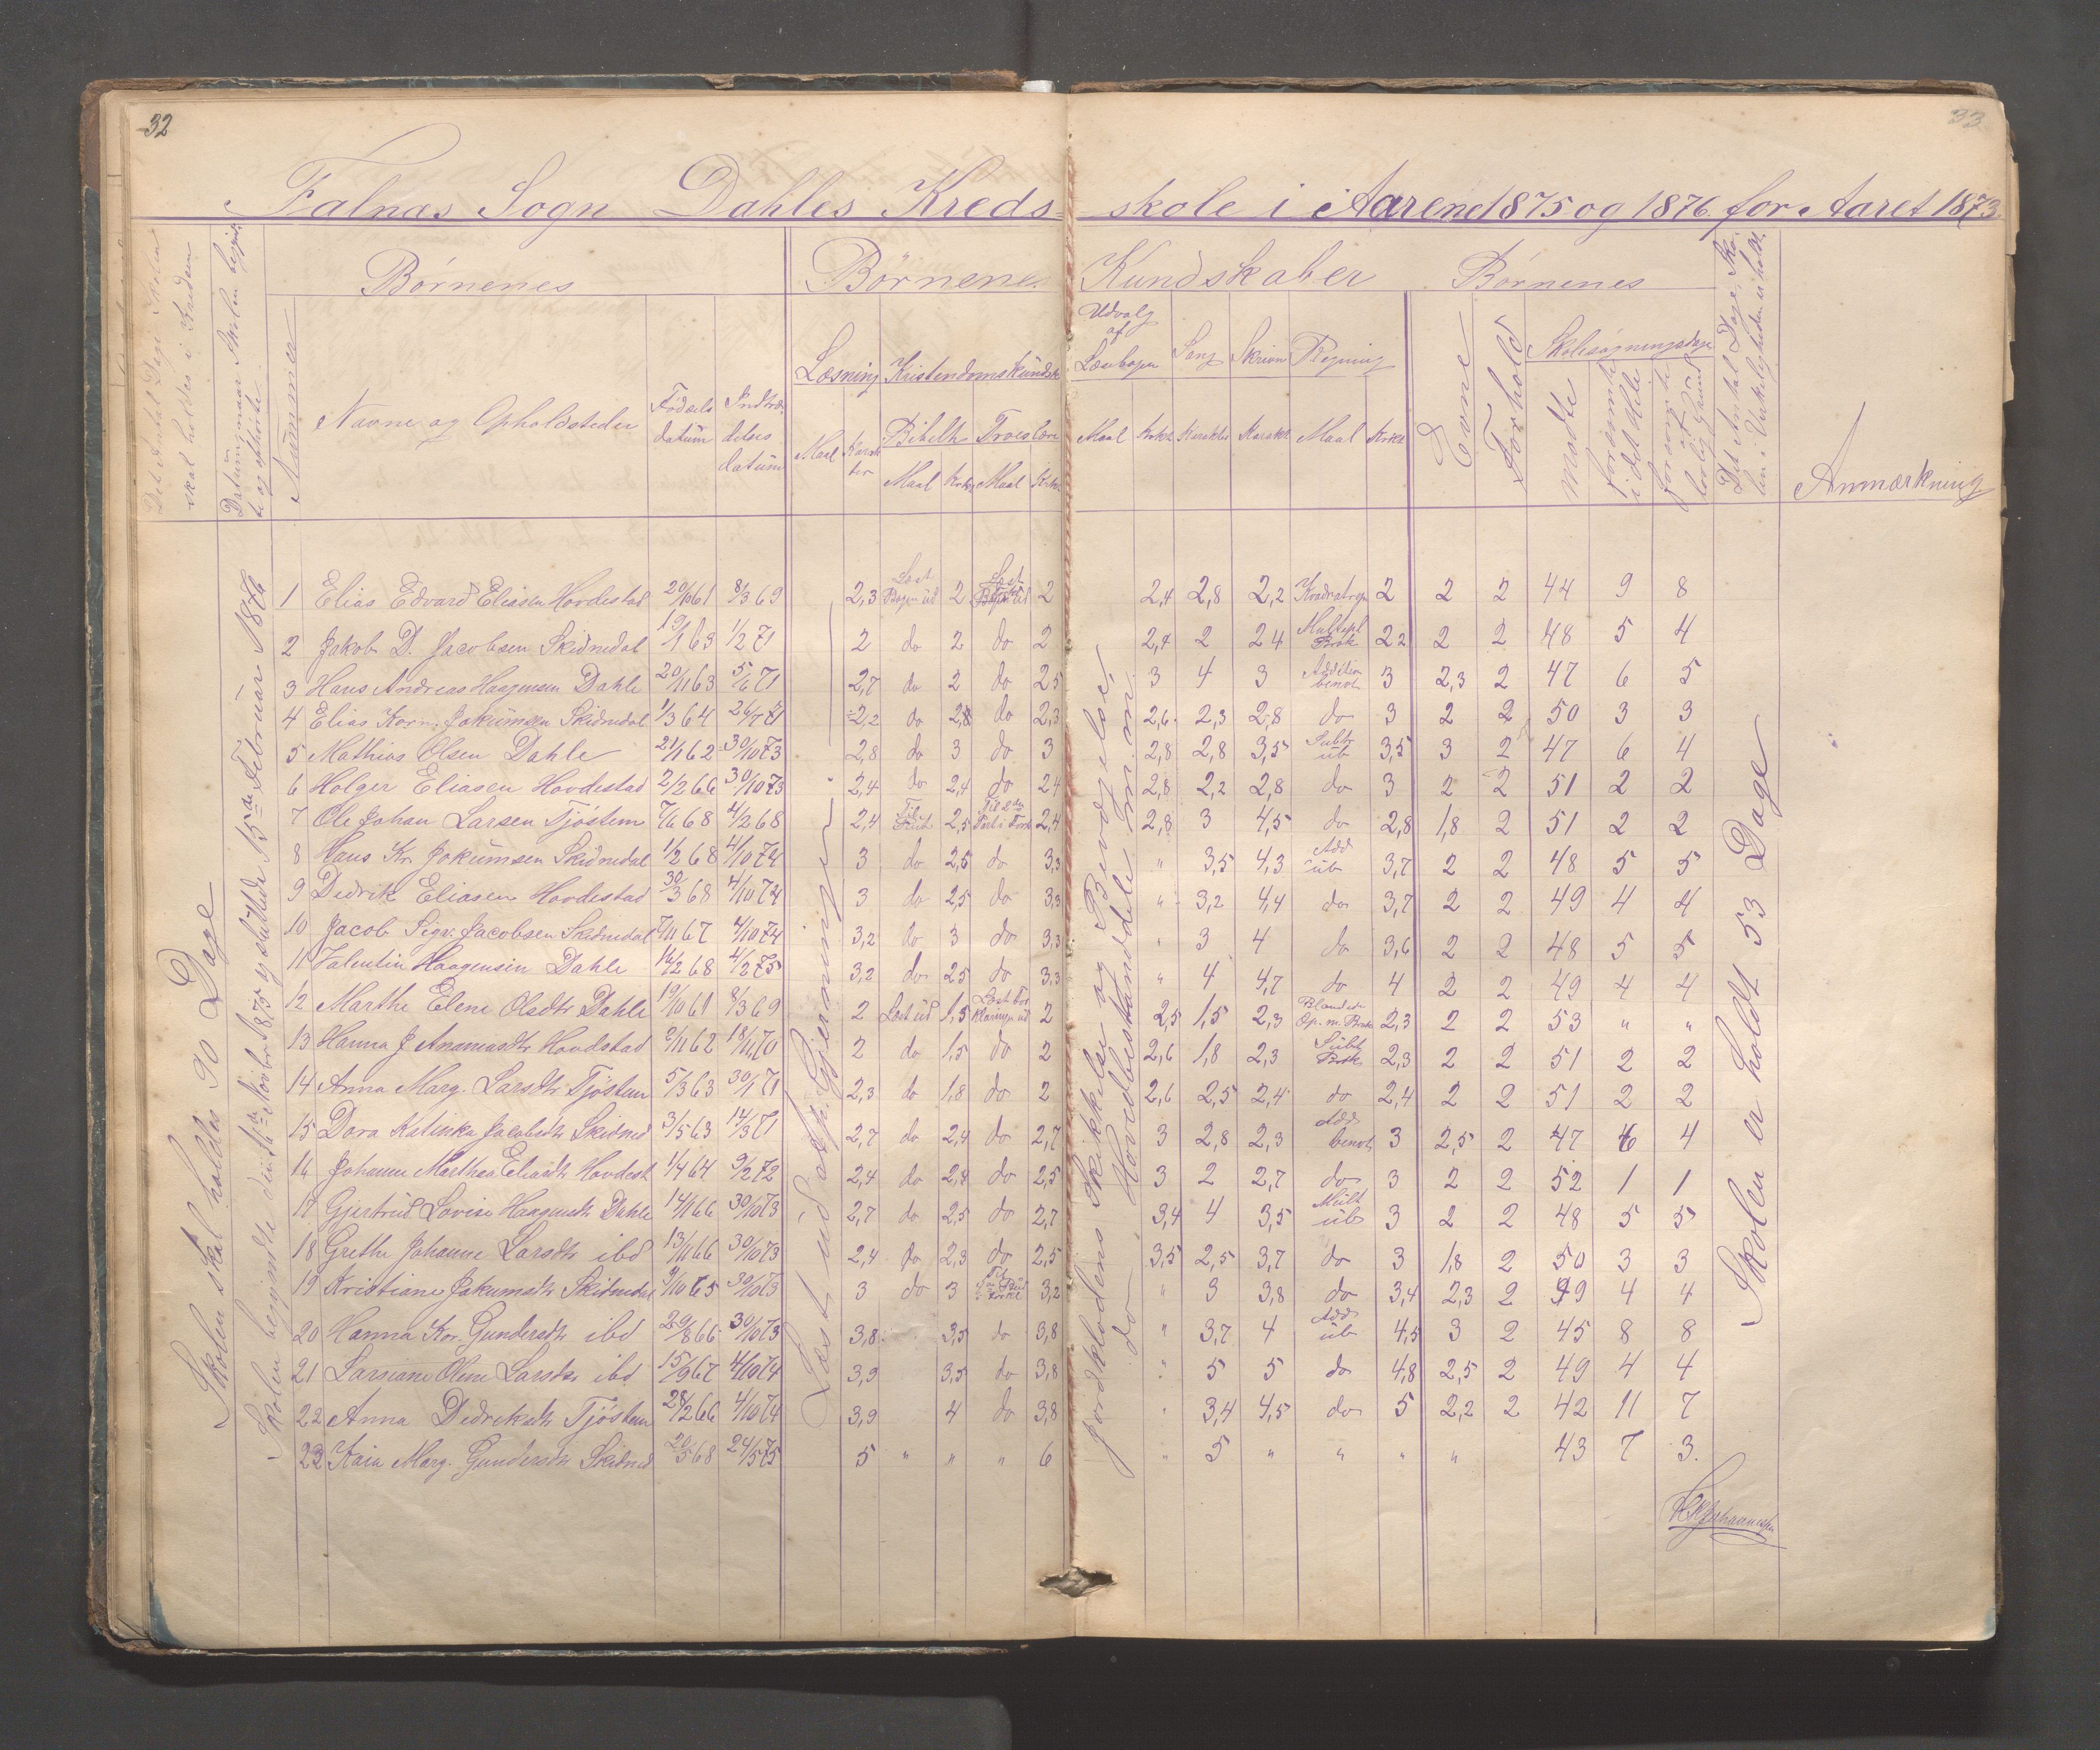 32
33
Falnæs Sogn Dahles Kreds-skole i Aarene 1875 og 1876 for Aaret 1873.
Det Antal Dage Skolen skal holdes i Kredsen
Datum naar Skolen begyndte og ophörte
Nummer
Börnenes
Navne og Opholdsteder
Födsels datum
Indtrædelses datum
Börnenes Kundskaber
Læsning
Maal
Karakter
Kristendomskundsk
Bibelh
Maal
Troeslære
Maal
Udvalg af Læsebogen
Maal
Sang
Karakter
Skrivn
Karakt
Regning
Maal
Börnenes
Evne
Forhold
Skolesögningsdage
Mödte
forsömte i det Hele
forsömte af lovlig Grund
Det Antal Dage Skolen i Virkeligheden er holdt.
Anmærkning
Skolen skal holdes 90 Dage
Skolen begyndte den 16de Novbr 1875 og sluttede 15de Februar 1876
Læst ud af Gjerninger
Jordklodens Skikkelse og Bevægelse,
do Hovedbestanddele m. m.
Skolen er holdt 53 Dage
1 Elias Edvard Eliasen Hovdestad 20/10 61 8/3 69 2,3 Læst Bogen ud 2 Læst Bogen ud 2 2,4 2,8 2,2 Kvadratregn 2 2 2 44 9 8
2 Jakob D. Jacobsen Skidnedal 19/1 63 1/2 71 2 do 2 do 2 2,4 2 2 4 Multipl Brök 2 2 2 2 48 5 4
3 Hans Andreas Haagensen Dahle 20/11 63 5/6 71 2,7 do 2 do 2 5 3 4 3 Addition benvn 3 2,3 2 47 6 5
4 Elias Korn. Jokumsen Skidnedal 1/3 64 26/7 71 2,2 do 2,8 do 2,3 2,6 2,3 2,8 do 3 2 2 50 3 3
5 Mathias Olsen Dahle 21/1 62 30/10 73 2,8 do 3 do 3 2,8 2,8 3,5 Subtr ub 3,5 3 2 47 6 4
6 Holger Eliasen Hovdestad 2/2 66 30/10 73 2,4 do 2,4 do 2 4 2,8 2,2 2,8 do 3 2 2 51 2 2
7 Ole Johan Larsen Tjöstem 7/6 68 4/2 68 2,4 2,5 2,4 2,8 3 4,5 do 2,8 1,8 2 51 2 2
8 Hans Kr. Jokumsen Skidnedal 1/2 68 4/10 74 3 do 2,5 do 3,3 " 3,5 4,3 Add ub 3,7 2 2 48 5 5
9 Didrik Eliasen Hovdestad 30/3 68 4/10 74 3 do 2,5 do 3,3 " 3,2 4,4 do 3,7 2 2 49 4 4
10 Jacob Sigv. Jacobsen Skidnedal 7/11 67 4/10 74 3,2 do 3 do 3,3 " 3 4 do 3,6 2 2 48 5 5
11 Valentin Haagensen Dahle 16/2 68 4/2 75 3,2 do 2 5 do 3,3 " 4 4,7 do 4 2 2 49 4 4
12 Marthe Elene Olsdtr Dahle 19/10 61 8/3 69 2 Læst ud 1,5 Læst Forklaringen ud 2 2,5 1,5 2,3 Blandede Op. m. Brök 2,3 2 2 53 " "
13 Hanna J Ananiasdtr Hovdstad 2/11 62 18/11 70 2 do 1,5 do 2 2,6 1,8 2,3 Subt Brök 2,3 2 2 51 2 2
14 Anna Marg. Larsdtr Tjöstem 5/3 63 30/1 71 2,3 do 1,8 do 2 2,6 2,5 2,4 do 2,4 2 2 51 2 2
15 Dora Katinka Jacobsdtr Skidned 3/5 63 14/3 71 2,7 do 2,4 do 2,7 3 2,8 2,3 Add benvn 3 2,5 2 47 6 4
16 Johanne Marthea Eliasdtr Hovdest 1/4 64 9/2 72 2,4 do 2,4 do 2,5 3 2 2,7 do 3 2 2 52 1 1
17 Gjertrud Lovise Haagensdtr Dahle 14/1 66 30/10 73 2,7 do 2,5 do 2,7 3,4 4 3,5 Mult ub 3 2 2 48 5 5
18 Grethe Johanne Larsdtr ibd 13/11 66 30/10 73 2,4 do 2,3 do 2,5 3,5 2,5 3,7 do 3 1,8 2 50 3 3
19 Kristiane Jakumsdtr Skidnedal 9/10 65 30/10 73 3 do 3 3,2 " 3 3,8 do 3,4 2,3 2 49 4 4
20 Hanna Kor. Gundersdtr ibd 29/8 66 30/10 73 3,8 3,5 do 3,8 " 3,7 4 Add ub 4,5 3 2 45 8 8
21 Larsiane Oline Larsdtr ibd 15/9 67 4/10 74 3,9 3,5 do 3,8 " 5 5 do 4,8 2,5 2 49 4 4
22 Anna Didriksdtr Tjöstem 28/2 66 4/10 74 3,9 4 do 3,8 " 3,4 4,5 do 5 2,2 2 42 11 7
23 Kaia Marg. Gundersdtr Skidned 20/5 68 24/5 75 5 " " " 6 " 5 " " " " 43 7 3.